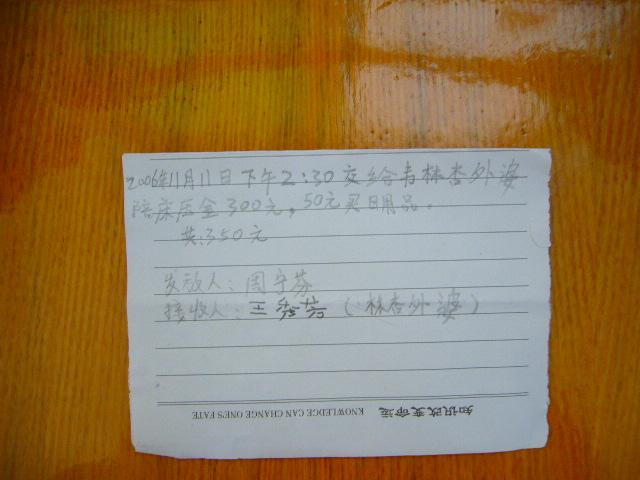 2006年11月11日下午2:30交给韦林杏外婆
陪床压金300元，50元买日用品。
共:350元
发放人：周守芬
接收人：王（林杏外婆）
知识改变命运 KNOWLEDGE CAN CHANGE ONE'S FATE